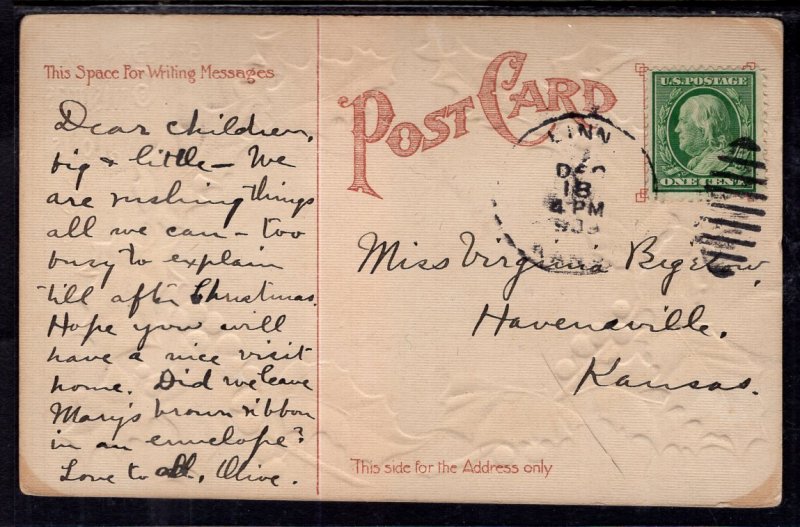 This Space For Writing Messages
POST CARD
U.S. POSTAGE
ONE CENT
LINN
DEC
18
4 PM
KANS
Dear children,
big + little - We
are rushing things
all we can - too
busy to explain
till after Christmas.
Hope you will
have a nice visit
home. Did we leave
Mary's brown ribbon
in an envelope?
Love to all, Olive.
Miss Virginia Bigelow,
Havensville,
Kansas.
This side for the Address only